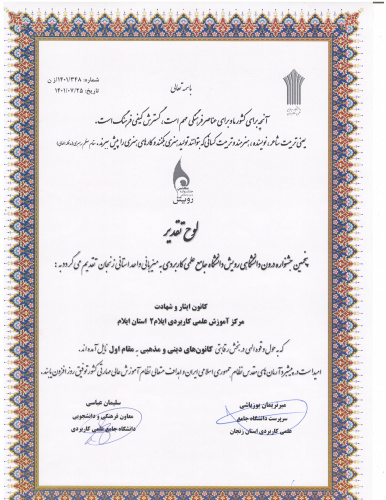 باسمه تعالی
شماره: ۱۴۰۱/۳۴۸/ز ن
تاریخ: ۱۴۰۱/۰۷/۲۵
آنچه برای کشور ما و برای عناصر فرهنگی مهم است، گسترش کیفی فرهنگ است.
یعنی تربیت شاعر، نویسنده، هنرمند و تربیت کسانی که بتوانند تولید هنری بکنند و کارهای هنری را پیش ببرند.
رویش
لوح تقدیر
پنجمین جشنواره درون دانشگاهی رویش دانشگاه جامع علمی کاربردی به میزبانی واحد استانی زنجان تقدیم می گردد به:
کانون ایثار و شهادت
مرکز آموزش علمی کاربردی ایلام۲ استان ایلام
که به حول و قوه الهی در بخش رقابتی کانون‌های دینی و مذهبی به مقام اول نایل آمده اند.
امید است در پیشبرد آرمان های مقدس نظام جمهوری اسلامی ایران و اهداف متعالی نظام آموزش عالی مهارتی کشور توفیق روز افزون یابند.
میرنریمان یوزباشی
سرپرست دانشگاه جامع
علمی کاربردی استان زنجان
سلیمان عباسی
معاون فرهنگی و دانشجویی
دانشگاه جامع علمی کاربردی